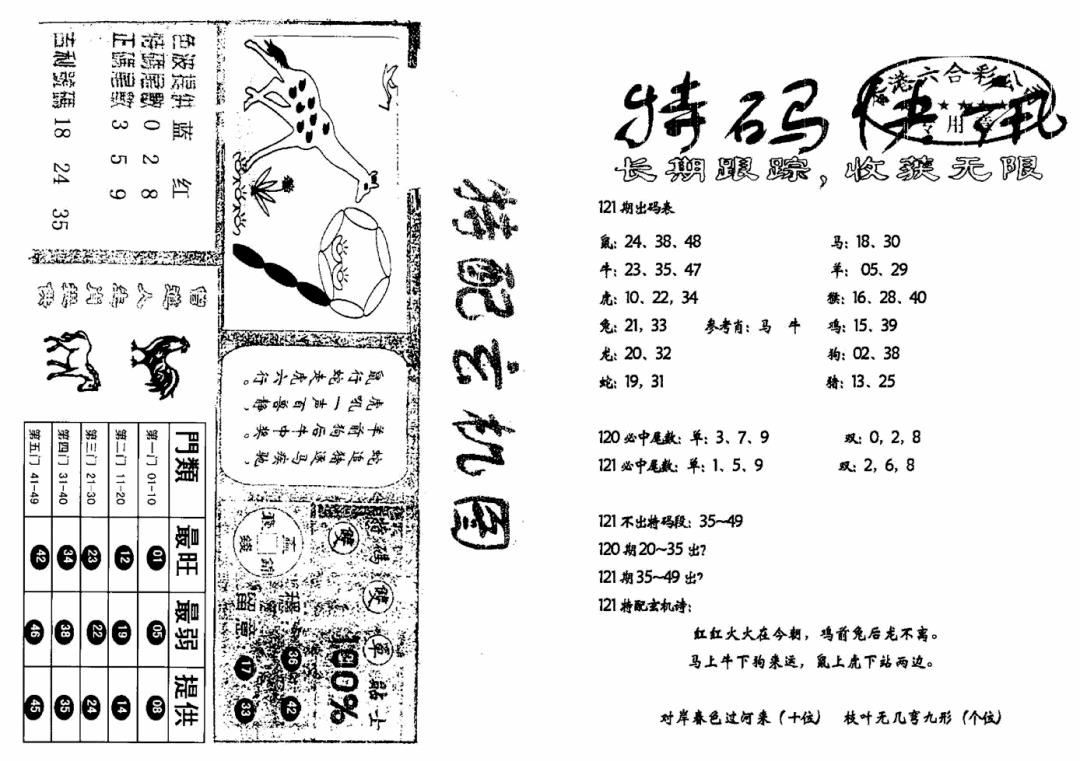 特码快讯
香港六合彩公司
★★★★★
专用章
长期跟踪，收获无限
121期出码表
鼠：24、38、48 马：18、30
牛：23、35、47 羊： 05、29
虎：10、22，34 猴：16、28、40
兔：21，33 参考肖：马 牛 鸡：15、39
龙：20、32 狗：02、38
蛇：19，31 猪：13、25
120必中尾数：单：3、7、9 双：0，2，8
121必中尾数：单：1、5、9 双：2，6，8
121不出特码段：35~49
120期20~35出？
121期35~49出？
121特配玄机诗：
红红火火在今朝，鸡首兔后龙不离。
马上牛下狗来运，鼠上虎下站两边。
对岸春色过河来（十位） 枝叶无几弯九形（个位）
特配玄机图
色波提供 蓝 红
特碼尾數 0 2 8
正碼尾數 3 5 9
吉利號碼 18 24 35
蛇追猪逐马疾驰，
羊前狗后牛中奖。
虎吼一声百兽静，
鼠行蛇走虎六行。
門類 最旺 最弱 提供
第一门 01-10 01 05 08
第二门 11-20 12 19 14
第三门 21-30 23 22 24
第四门 31-40 34 38 35
第五门 41-49 42 46 45
特碼
雙 雙 單
貼士
100%
赢錢
留意
36 42
17 33